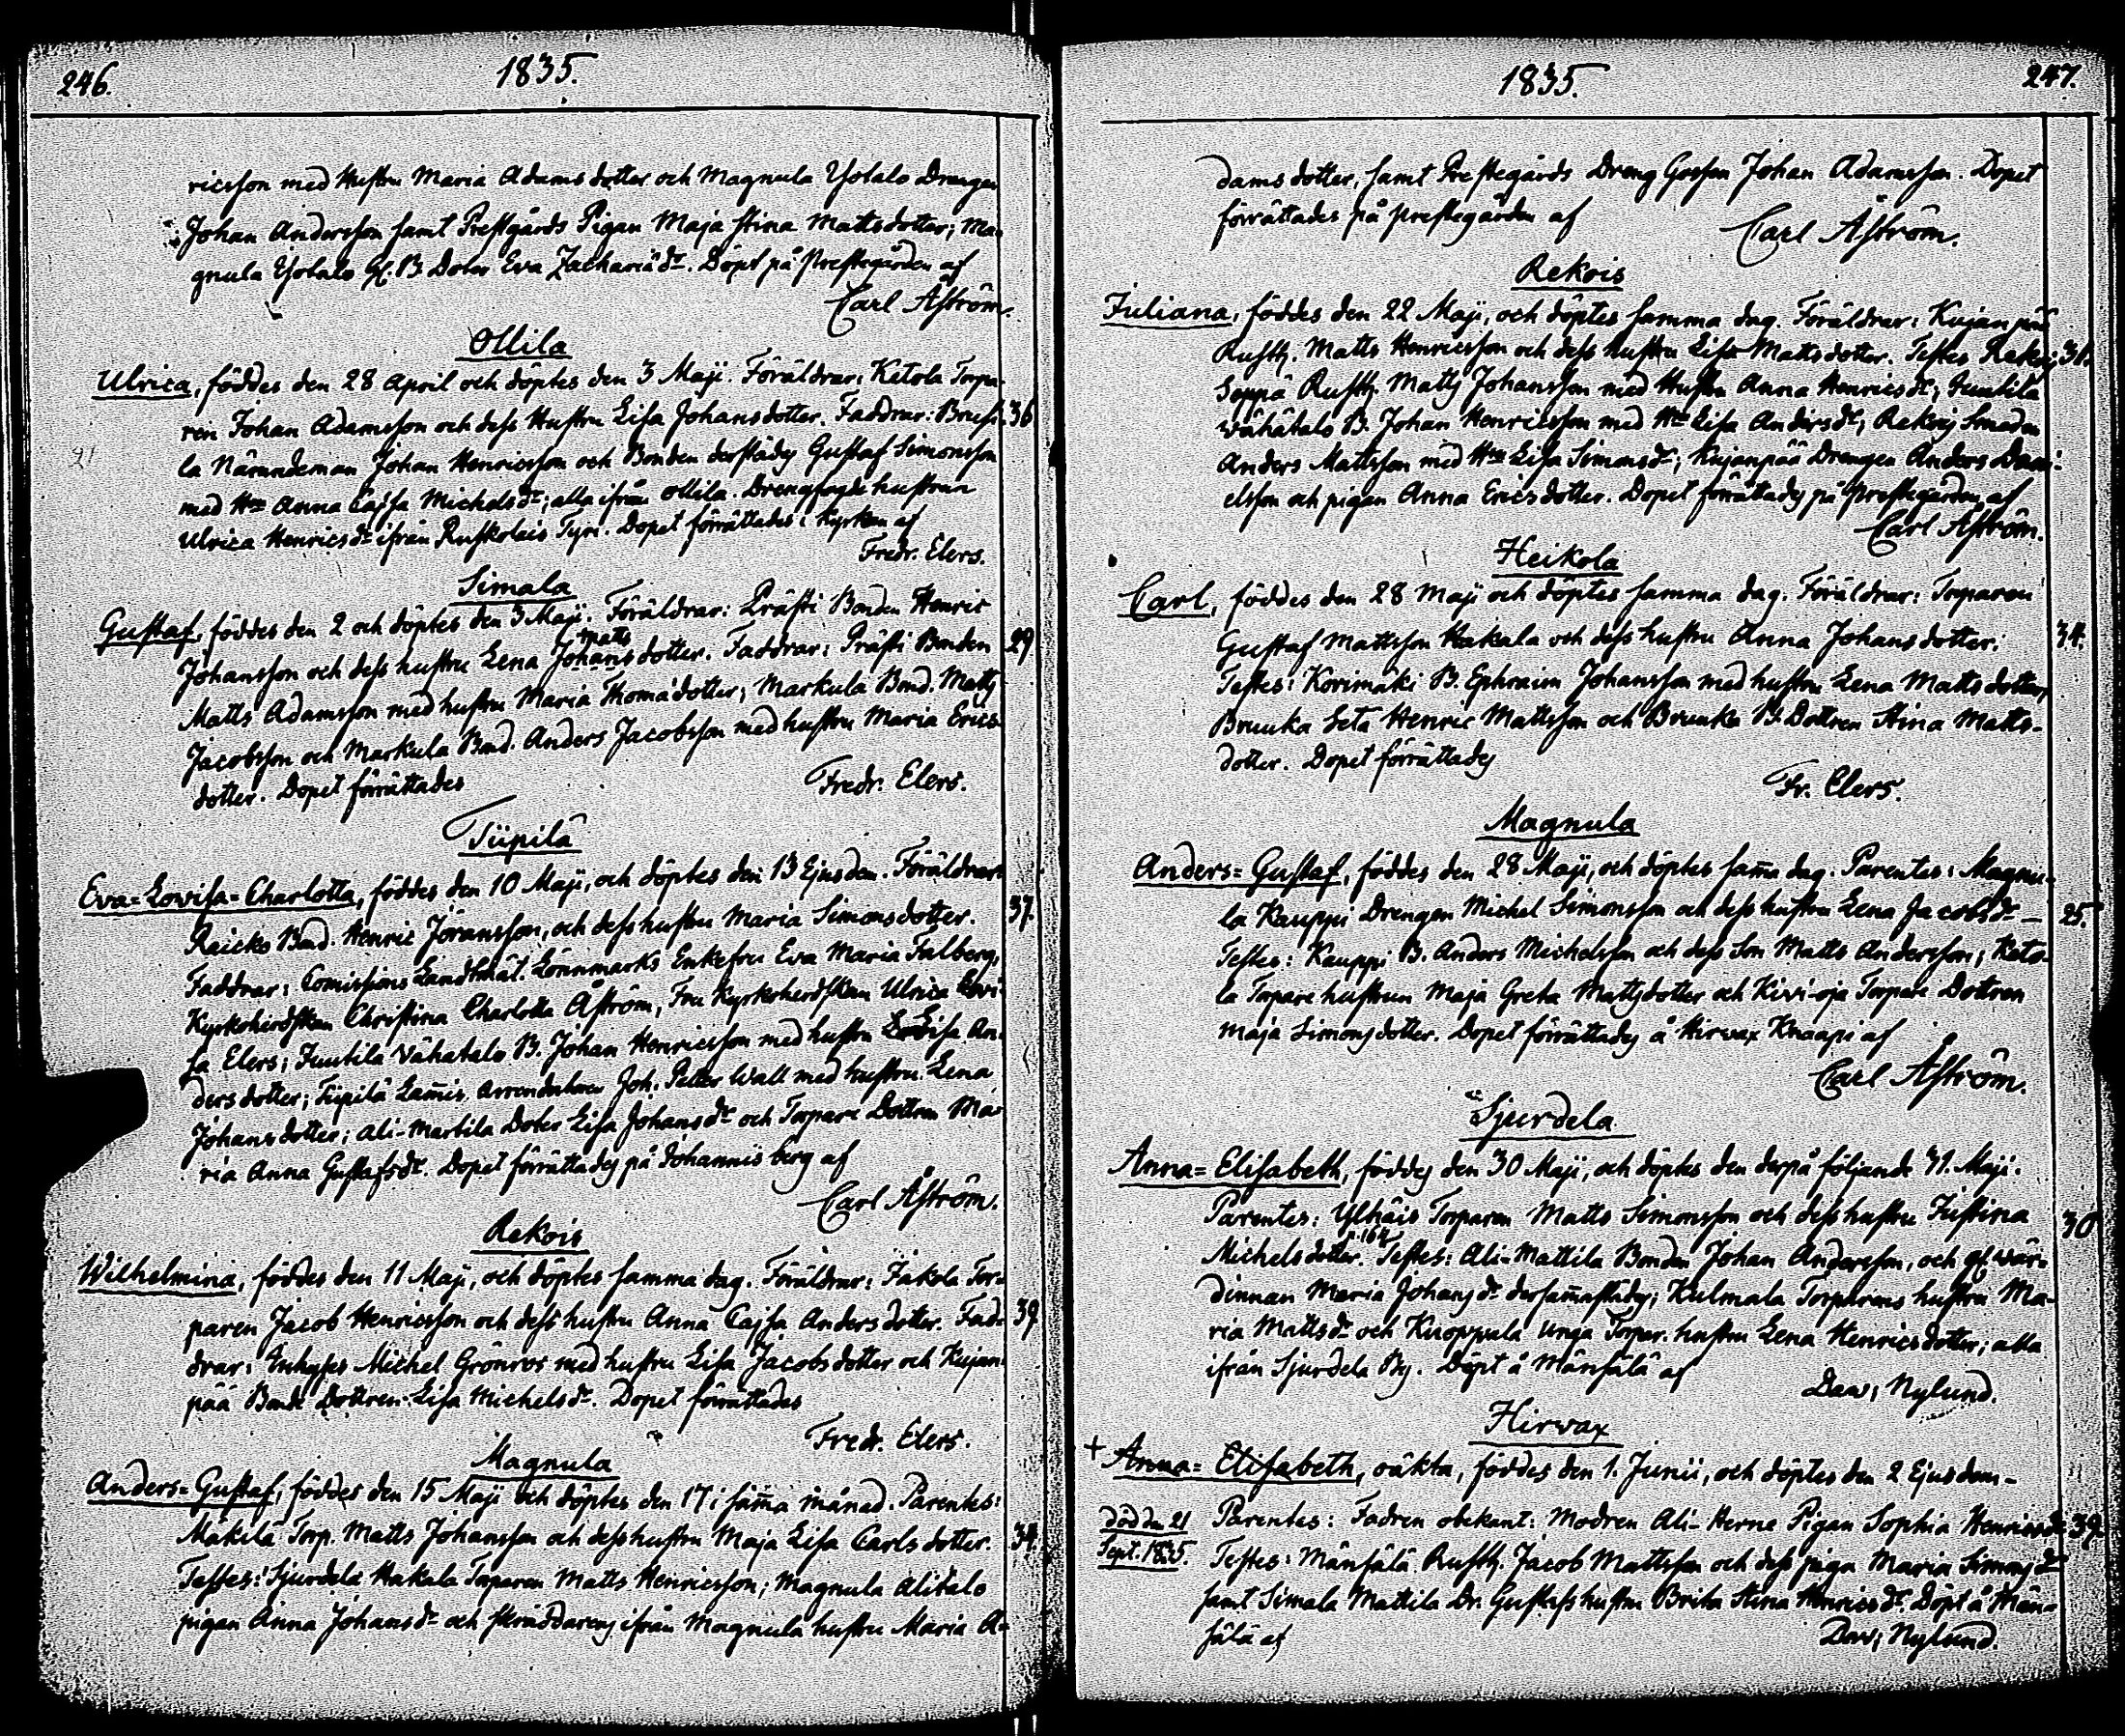 246.
1835.
ricsson med Hustru Maria Adams dotter och Magnula Yotalo Drengen
Johan Andersson samt Prestgårds Pigan Maja Stina Matts dotter; Ma-
gnula Yotalo B. Doter Eva Zachariæ dr. Döpt på Prestegården af
Carl Åström.
Ollila
Ulrica, föddes den 28 April och döptes den 3 Maji. Föräldrar: Ketola Torpa-
ren Johan Adamsson och dess Hustru Lisa Johans dotter. Faddrar: Brusi- 36
la Nämndeman Johan Henricsson och Bonden derstädes Gustaf Simonsson
med Hru Anna Cajsa Michels dr; alla ifrån Ollila. Drengfogde hustrun
Ulrica Henrics dr ifrån Ruskolais Tyri. Dopet förrättades i Kyrkan af
Fredr. Elers.
Simala
Gustaf, föddes den 2 och döptes den 3 Maji. Föräldrar: Präfti Bonden Henric
matts
Johansson och dess hustru Lena Johans dotter. Faddrar: Präfti Bonden 29
Matts Adamsson med hustru Maria Thomæ dotter; Markula Bond. Matts
Jacobsson och Markula Bond. Anders Jacobsson med hustru Maria Erics
dotter. Dopet förrättades
Fredr. Elers.
Tüpilä
Eva=Lovisa=Charlotta, föddes den 10 Maji, och döptes den 13 Ejusdem. Föräldrar:
Raicko Bond. Henric Jöransson, och dess hustru Maria Simons dotter. 37.
Faddrar: Comissions Landtmät. Lönnmarks Enkefru Eva Maria Falberg,
Kyrkoherdskan Christina Charlotta Åström, Fru Kyrkoherdskan Ulrica Lovi-
sa Elers; Juutila Vähatalo B. Johan Henricsson med hustru Lovisa An-
ders dotter; Tüpilä Lamis Arrendatoren Joh. Petter Wall med hustru Lena
Johans dotter; Ali-Martila Doter Lisa Johans dr och Torpare Dottren Ma-
ria Anna Gustafs dr. Dopet förrättades på Johannisberg af
Carl Åström.
Rekois
Wilhelmina, föddes den 11 Maji, och döptes samma dag. Föräldrar: Jakola Tor-
paren Jacob Henricsson och dess hustru Anna Cajsa Anders dotter. Fad- 39
drar: Inhyses Michel Grönros med hustru Lisa Jacobs dotter och Kujan-
pää Bonde Dottren Lisa Michels dr. Dopet förrättades
Fredr. Elers.
Magnula
Anders=Gustaf, föddes den 15 Maji och döptes den 17 i samma månad. Parentes:
Mäkilä Torp. Matts Johansson och dess hustru Maja Lisa Carls dotter. 34.
Testes: Sjurdela Hakala Torparen Matts Henricsson; Magnula Alitalo
pigan Anna Johans dr och skräddarens ifrån Magnula hustru Maria A=
1835.
247.
dams dotter, samt Prestegårds Dreng Gossen Johan Adamsson. Dopet
förrättades på Prestegården af
Carl Åström.
Rekois
Juliana, föddes den 22 Maji, och döptes samma dag. Föräldrar: Kujanpää
Rusth. Matts Henricsson och dess hustru Lisa Matts dotter. Testes Rekois 31.
Seppä Rusth. Matts Johansson med Hustru Anna Henrics dr; Juutila
Vähätalo B. Johan Henricsson med Hru Lisa Anders dr; Rekois Smeden
Anders Mattsson med Hru Lisa Simons dr; Kujanpää Drengen Anders Dani-
elsson och pigan Anna Erics dotter. Dopet förrättades på Prestegården af
Carl Åström.
Heikola
Carl, föddes den 28 Maji och döptes samma dag. Föräldrar: Torparen
Gustaf Mattsson Hakala och dess hustru Anna Johans dotter. 34.
Testes: Korimäki B. Ephraim Johansson med hustru Lena Matts dotter,
Bruuka Seta Henric Mattsson och Bruuka B. Dottren Stina Matts-
dotter. Dopet förrättades
Fr. Elers.
Magnula
Anders=Gustaf, föddes den 28 Maji, och döptes samma dag. Parentes: Magnu-
la Kauppi Drengen Michel Simonsson och dess hustru Lena Jacobs dr – 25.
Testes: Kauppi B. Anders Michelsson och dess Son Matts Andersson; Keto-
la Torpare hustrun Maja Greta Matts dotter och Kivi-oja Torpare Dottren
Maja Simons dotter. Dopet förrättades å Hirvax Knaapi af
Carl Åström.
Sjurdela
Anna=Elisabeth, föddes den 30 Maji, och döptes den derpå följande 31. Maji.
Parentes: Ylhäis Torparen Matts Simonsson och dess hustru Justina 30
Michels dotter. Testes: Ali-Mattila Bonden Johan Andersson, och gl. wär-
dinnan Maria Johans dr dersammastädes; Kulmala Torparens hustru Ma-
ria Matts dr och Knoppala unga Torpar. hustru Lena Henrics dotter; alla
ifrån Sjurdela By. Döpt å Mänsälä af
Dav; Nylund.
Hirvax
+ Anna=Elisabeth, oäkta, föddes den 1. Junii, och döptes den 2 Ejusdem –
död den 21
Sept. 1835.
Parentes: Fadren obekant: Modren Ali-Herne Pigan Sophia Henrics dr 39.
Testes: Mänsälä Rusth. Jacob Mattsson och dess piga Maria Simons dr
samt Simala Mattila Dr. Gustafs hustru Brita Stina Henrics dr. Döpt å Män-
sälä af
Dav; Nylund.